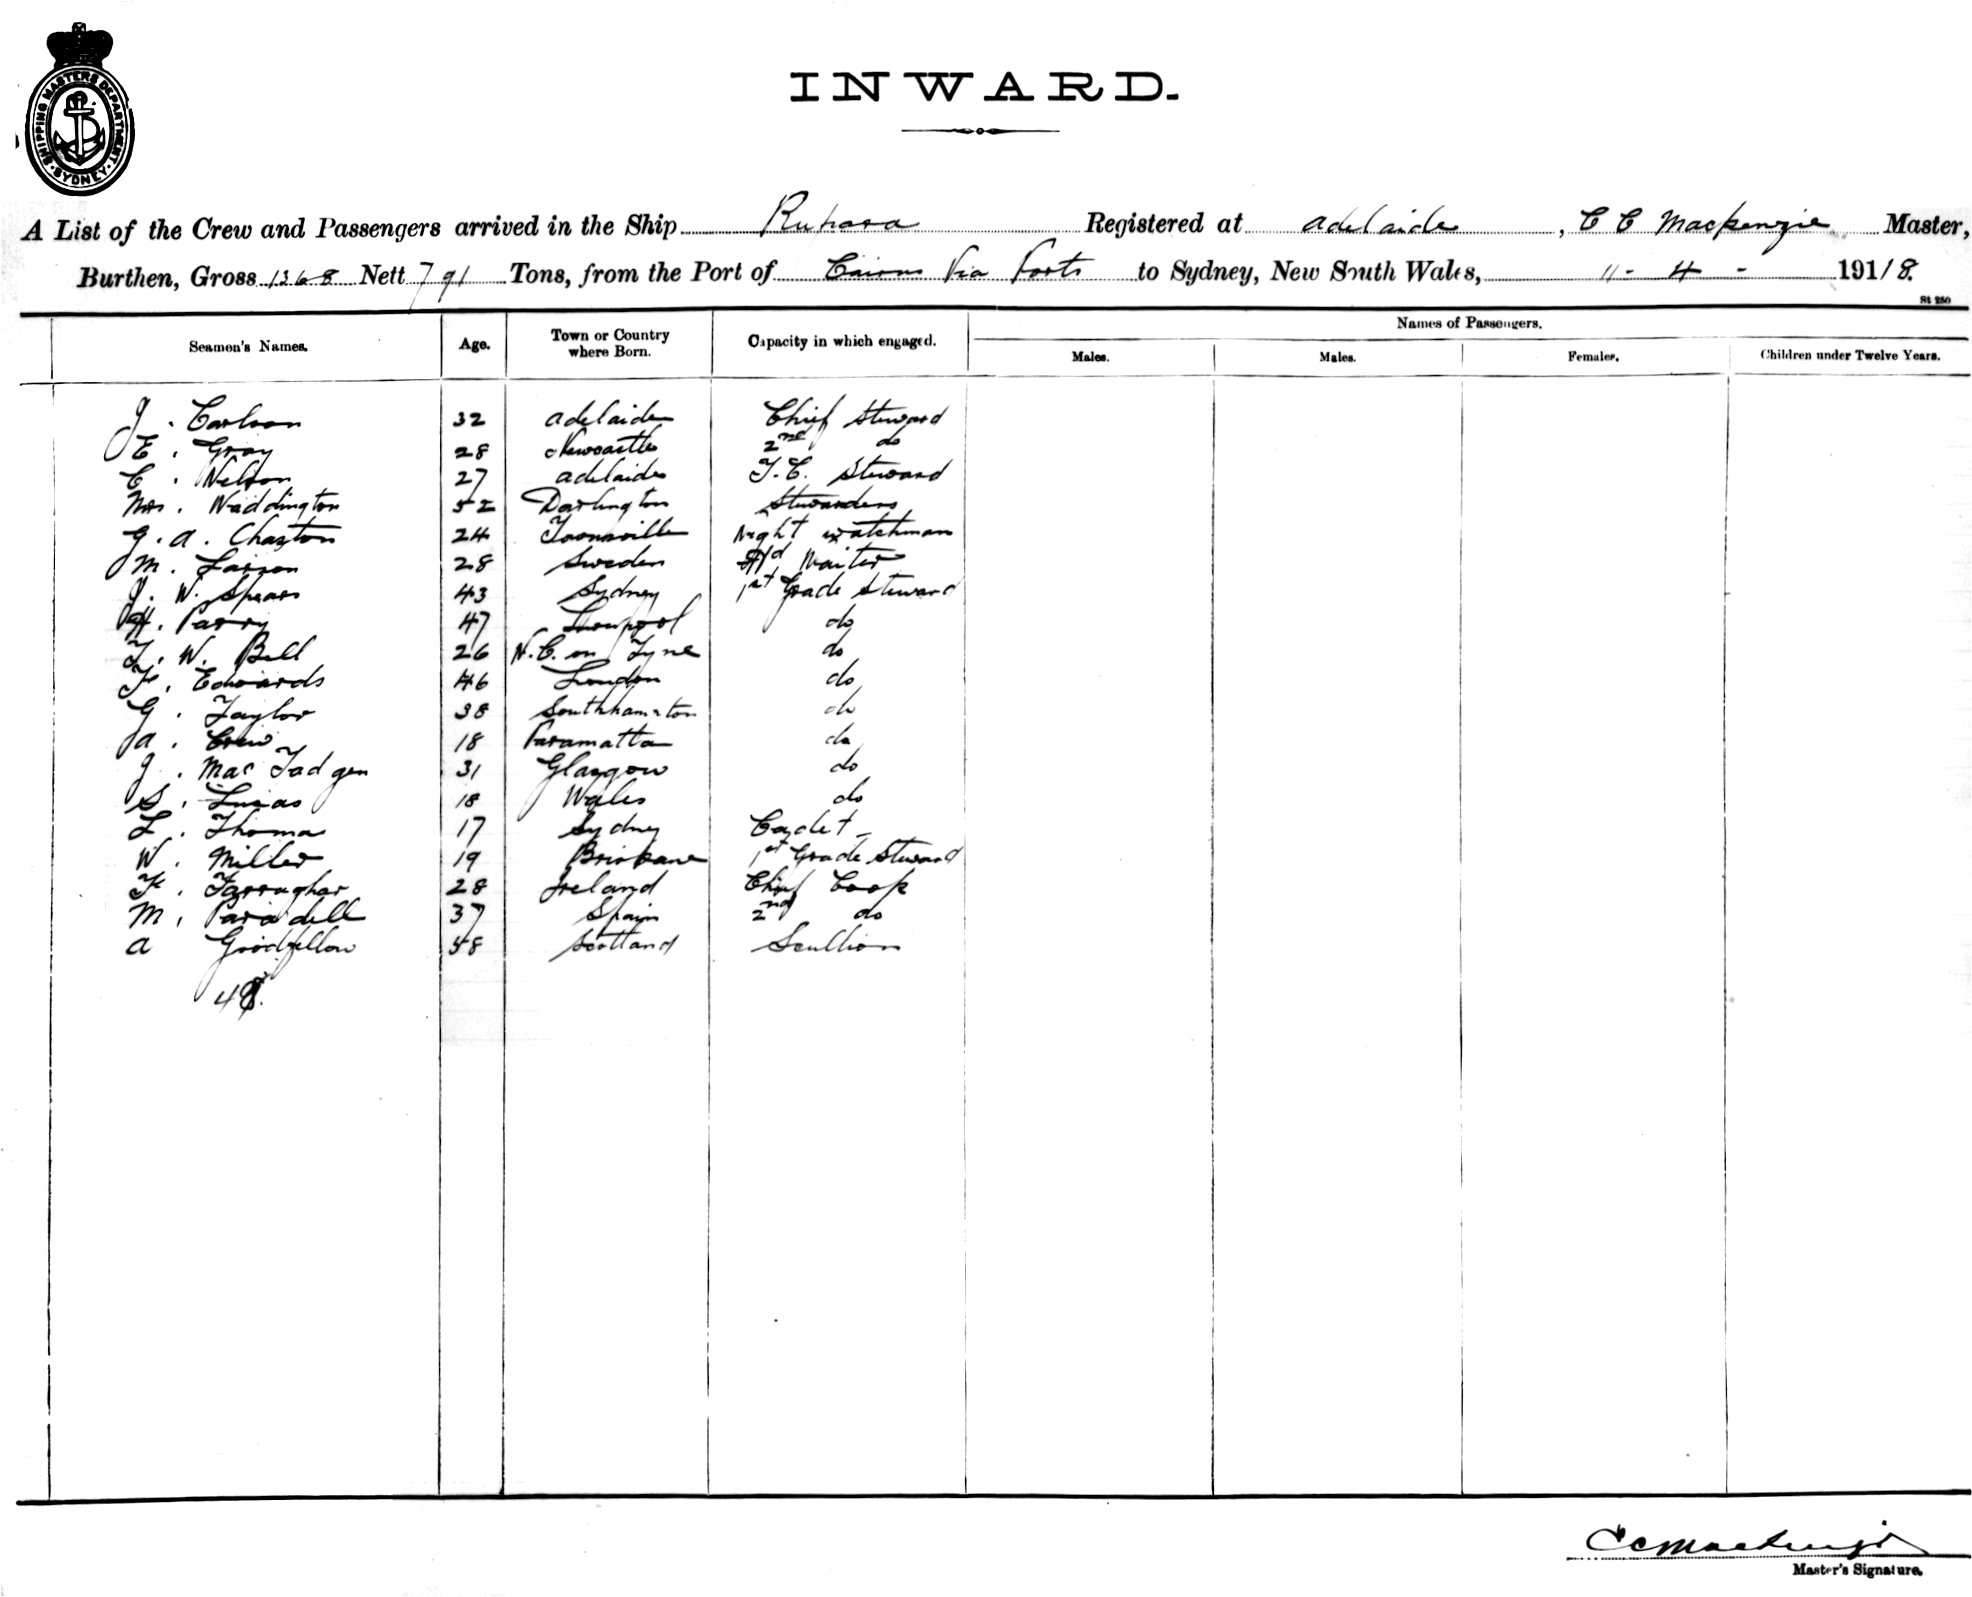 SHIPPING MASTERS DEPARTMENT · SYDNEY ·
INWARD.
A List of the Crew and Passengers arrived in the Ship Rupara Registered at Adelaide, C C Mackenzie Master,
Burthen, Gross 1368 Nett 791 Tons, from the Port of Cairns Via Ports to Sydney, New South Wales, 11 - 4 - 1918.
St 250
Seamen's Names. Age. Town or Country where Born. Capacity in which engaged. Names of Passengers.
Males. Males. Females. Children under Twelve Years.
J. Carlson 32 Adelaide Chief Steward
E. Gray 28 Newcastle 2nd do
C. Nelson 27 Adelaide F.C. Steward
Mrs. Waddington 52 Darlington Stewardess
G. A. Charlton 24 Townsville Night watchman
M. Larson 28 Sweden Waiter
J. W. Spears 43 Sydney 1st Grade Steward
H. Parry 47 Liverpool do
T. W. Bell 26 N.C. on Tyne do
F. Edwards 46 London do
G. Taylor 38 Southhamton do
A. Crew 18 Paramatta do
J. Mac Fadgen 31 Glasgow do
S. Lucas 18 Wales do
L. Thoma 17 Sydney Cadet
W. Miller 19 Brisbane 1st Grade Steward
F. Farraghar 28 Ireland Chief Cook
M. Paradell 37 Spain 2nd do
A Goodfellow 58 Scotland Scullion
C C Mackenzie
Master's Signature.